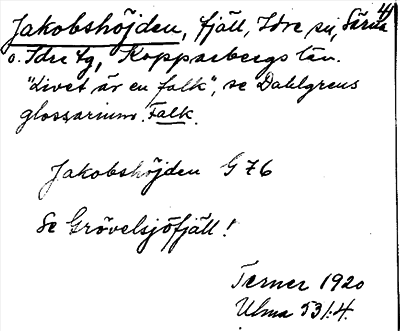 4)
Jakobshöjden, fjäll, Idre sn, Särna
o. Idre tg, Kopparbergs län.
"Livet är en falk", se Dahlgrens
glossarium. Falk.
Jakobshöjden G 76
Se Grövelsjöfjäll!
Terner 1920
Ulma 53:4.